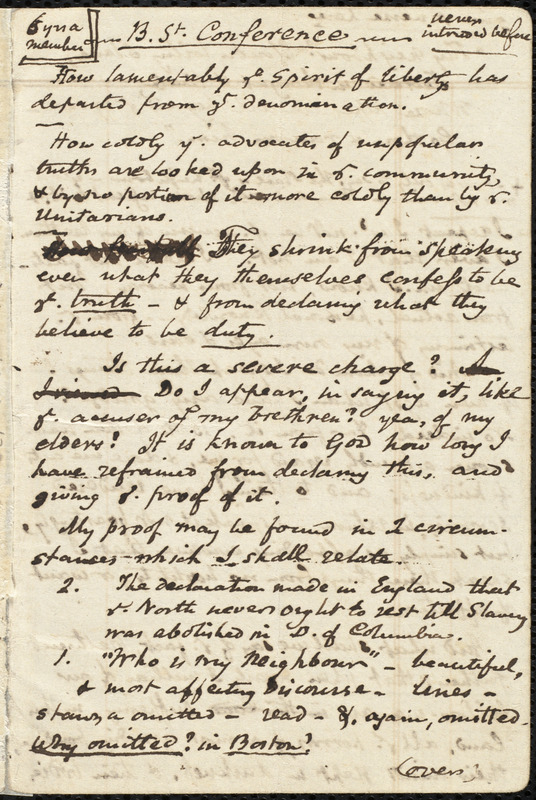 B. St. Conference
never
introd before
member
How lamentably ye. Spirit of liberty has
departed from ye. denomination.
How coldly ye. advocates of unpopular
truths are looked upon in ye. community,
& by no portion of it more coldly than by ye.
Unitarians.
They shrink from speaking
even what they themselves confess to be
ye. truth - & from declaring what they
believe to be duty.
Is this a severe charge?
Do I appear, in saying it, like
ye. accuser of my brethren? yea, of my
elders? It is known to God how long I
have refrained from declaring this, and
giving ye. proof of it.
My proof may be found in 2 circum-
stances which I shall relate.
2. The declaration made in England that
ye. North never ought to rest till Slavery
was abolished in D. of Columbia.
1. "Who is my Neighbour" - beautiful,
& most affecting Discourse - lines -
stanza omitted - read - &, again, omitted.
Why omitted? in Boston!
(over)